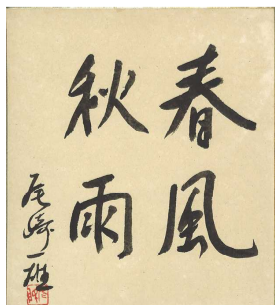 春風
秋雨
尾崎一雄